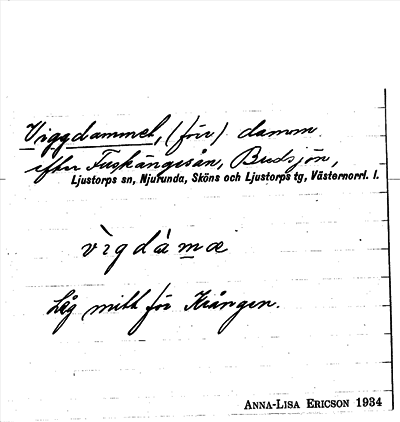 Viggdammet, (förr) damm
efter Fuskängesån, Budsjön,
Ljustorps sn, Njurunda, Sköns och Ljustorps tg, Västernorrl. l.
vìgdàmæ
Låg mitt för Krången.
ANNA-LISA ERICSON 1934